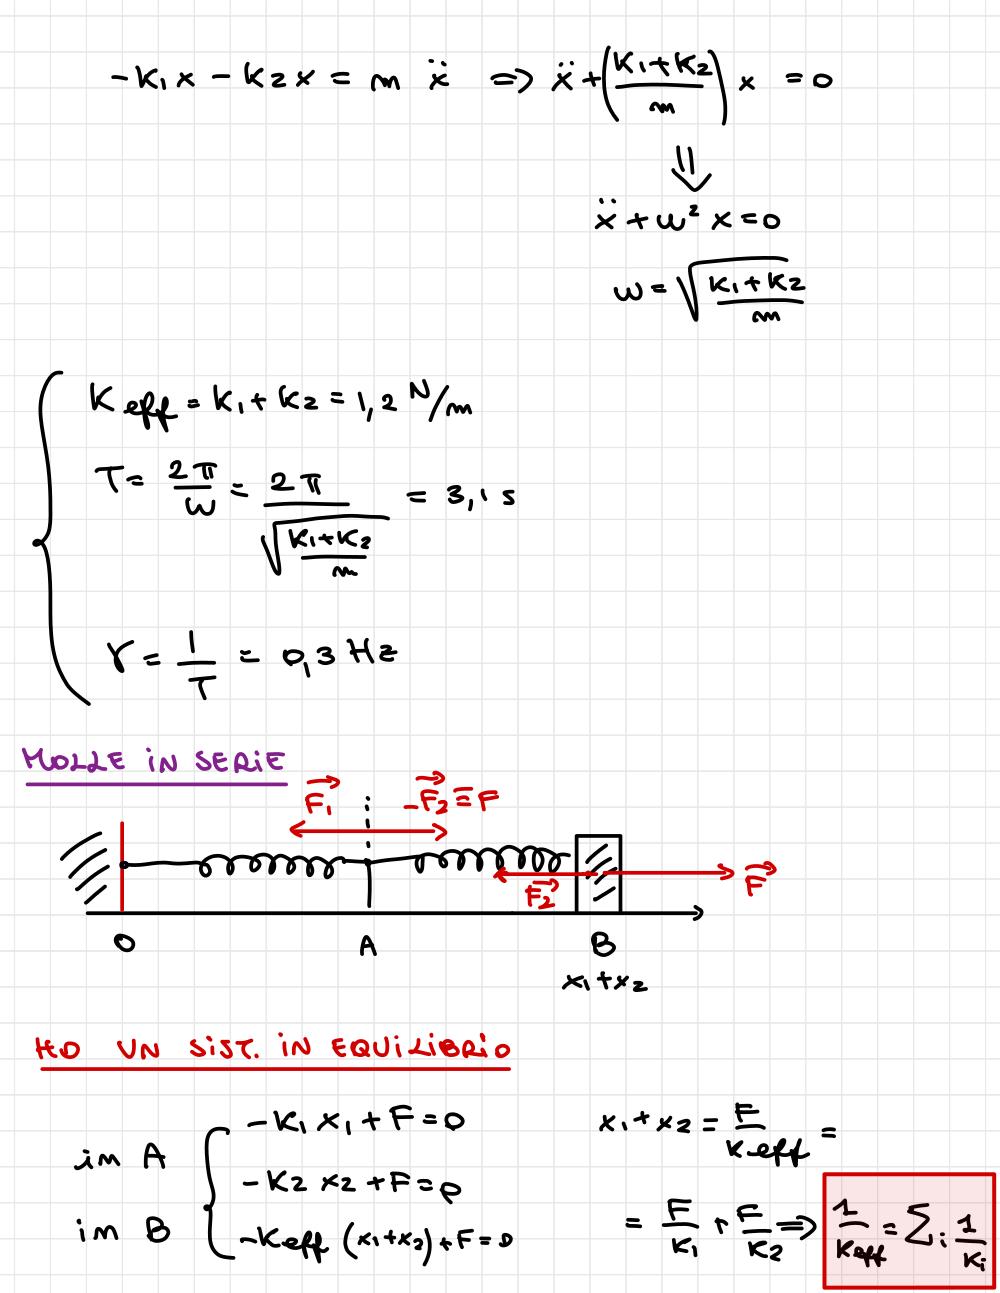 -K₁x - K₂x = m ẍ ⇒ ẍ + ((K₁+K₂)/m) x = 0
⇓
ẍ + ω² x = 0
ω = √((K₁+K₂)/m)
K eff = K₁ + K₂ = 1,2 N/m
T = 2π/ω = 2π/√((K₁+K₂)/m) = 3,1 s
γ = 1/T = 0,3 Hz
MOLLE IN SERIE
F₁→ -F₂→ ≡ F
F₂→ F→
O A B
x₁+x₂
HO UN SIST. IN EQUILIBRIO
in A { -K₁ x₁ + F = 0
-K₂ x₂ + F = 0
in B -Keff (x₁+x₂) + F = 0
x₁ + x₂ = F/Keff =
= F/K₁ + F/K₂ ⇒ 1/Keff = Σᵢ 1/Kᵢ